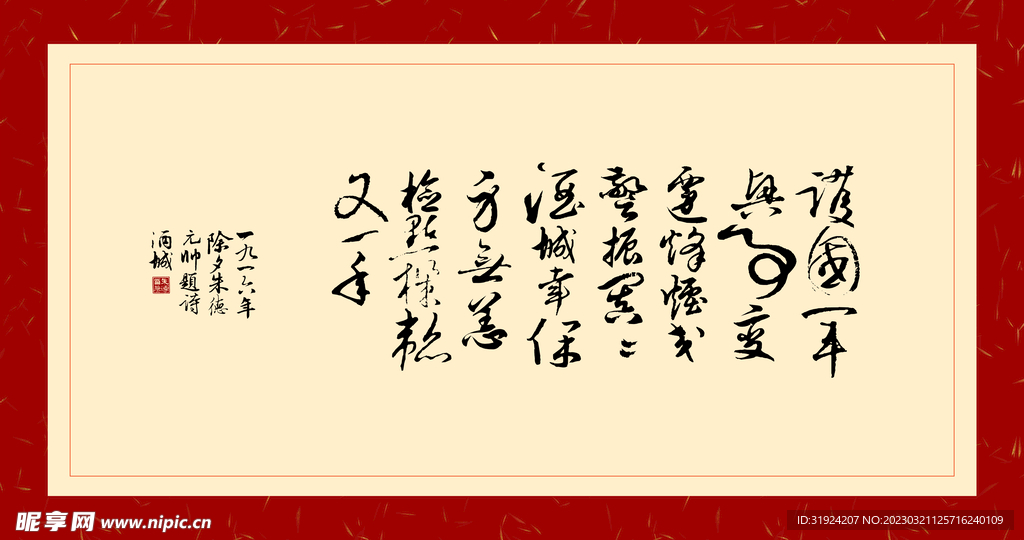 護國軍
興事變
遷烽煙
警振闐〻
酒城幸保
身無恙
檢點機韜
又一年
一九一六年
除夕朱德
元帥題詩
酒城
昵享网 www.nipic.cn
ID:31924207 NO:20230321125716240109